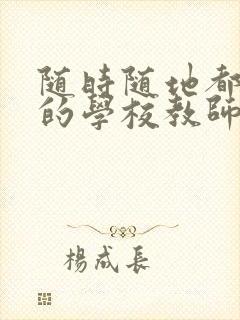 随時随地都
的學校教師
楊成長